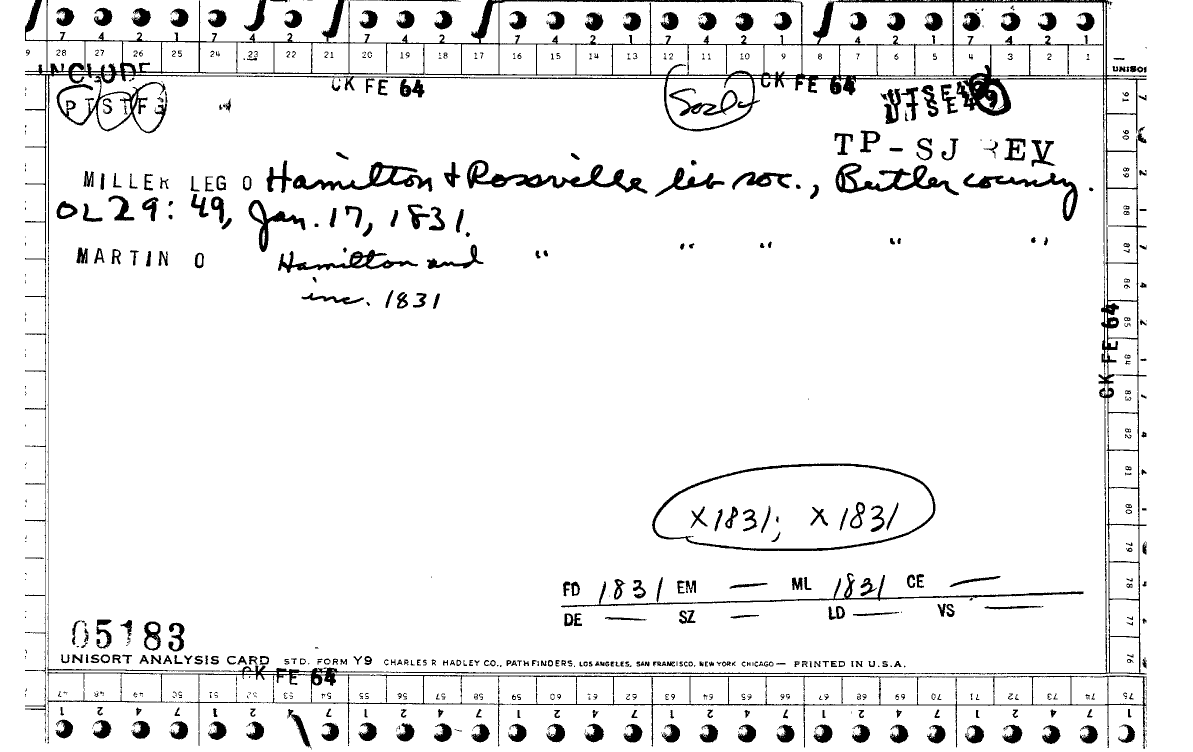 7 4 2 1 7 4 2 1 7 4 2 1 7 4 2 1 7 4 2 1 7 4 2 1 7 4 2 1
9 28 27 26 25 24 23 22 21 20 19 18 17 16 15 14 13 12 11 10 9 8 7 6 5 4 3 2 1
INCLUDE
UNISOR
PTSTFG
CK FE 64
CK FE 64
UTSE49
UTSE49
TP-SJ REV
MILLER LEG O Hamilton & Rossville lib soc., Butler county.
OL 29: 49, Jan. 17, 1831.
MARTIN O Hamilton and " " " " "
inc. 1831
CK FE 64
91 90 89 88 87 86 85 84 83 82 81 80 79 78 77 76
X1831; X1831
FD 1831 EM — ML 1831 CE —
DE — SZ — LD — VS —
05183
UNISORT ANALYSIS CARD STD. FORM Y9 CHARLES R HADLEY CO., PATHFINDERS, LOS ANGELES, SAN FRANCISCO, NEW YORK CHICAGO — PRINTED IN U.S.A.
CK FE 64
47 48 49 50 51 52 53 54 55 56 57 58 59 60 61 62 63 64 65 66 67 68 69 70 71 72 73 74 75
1 2 4 7 1 2 4 7 1 2 4 7 1 2 4 7 1 2 4 7 1 2 4 7 1 2 4 7 1